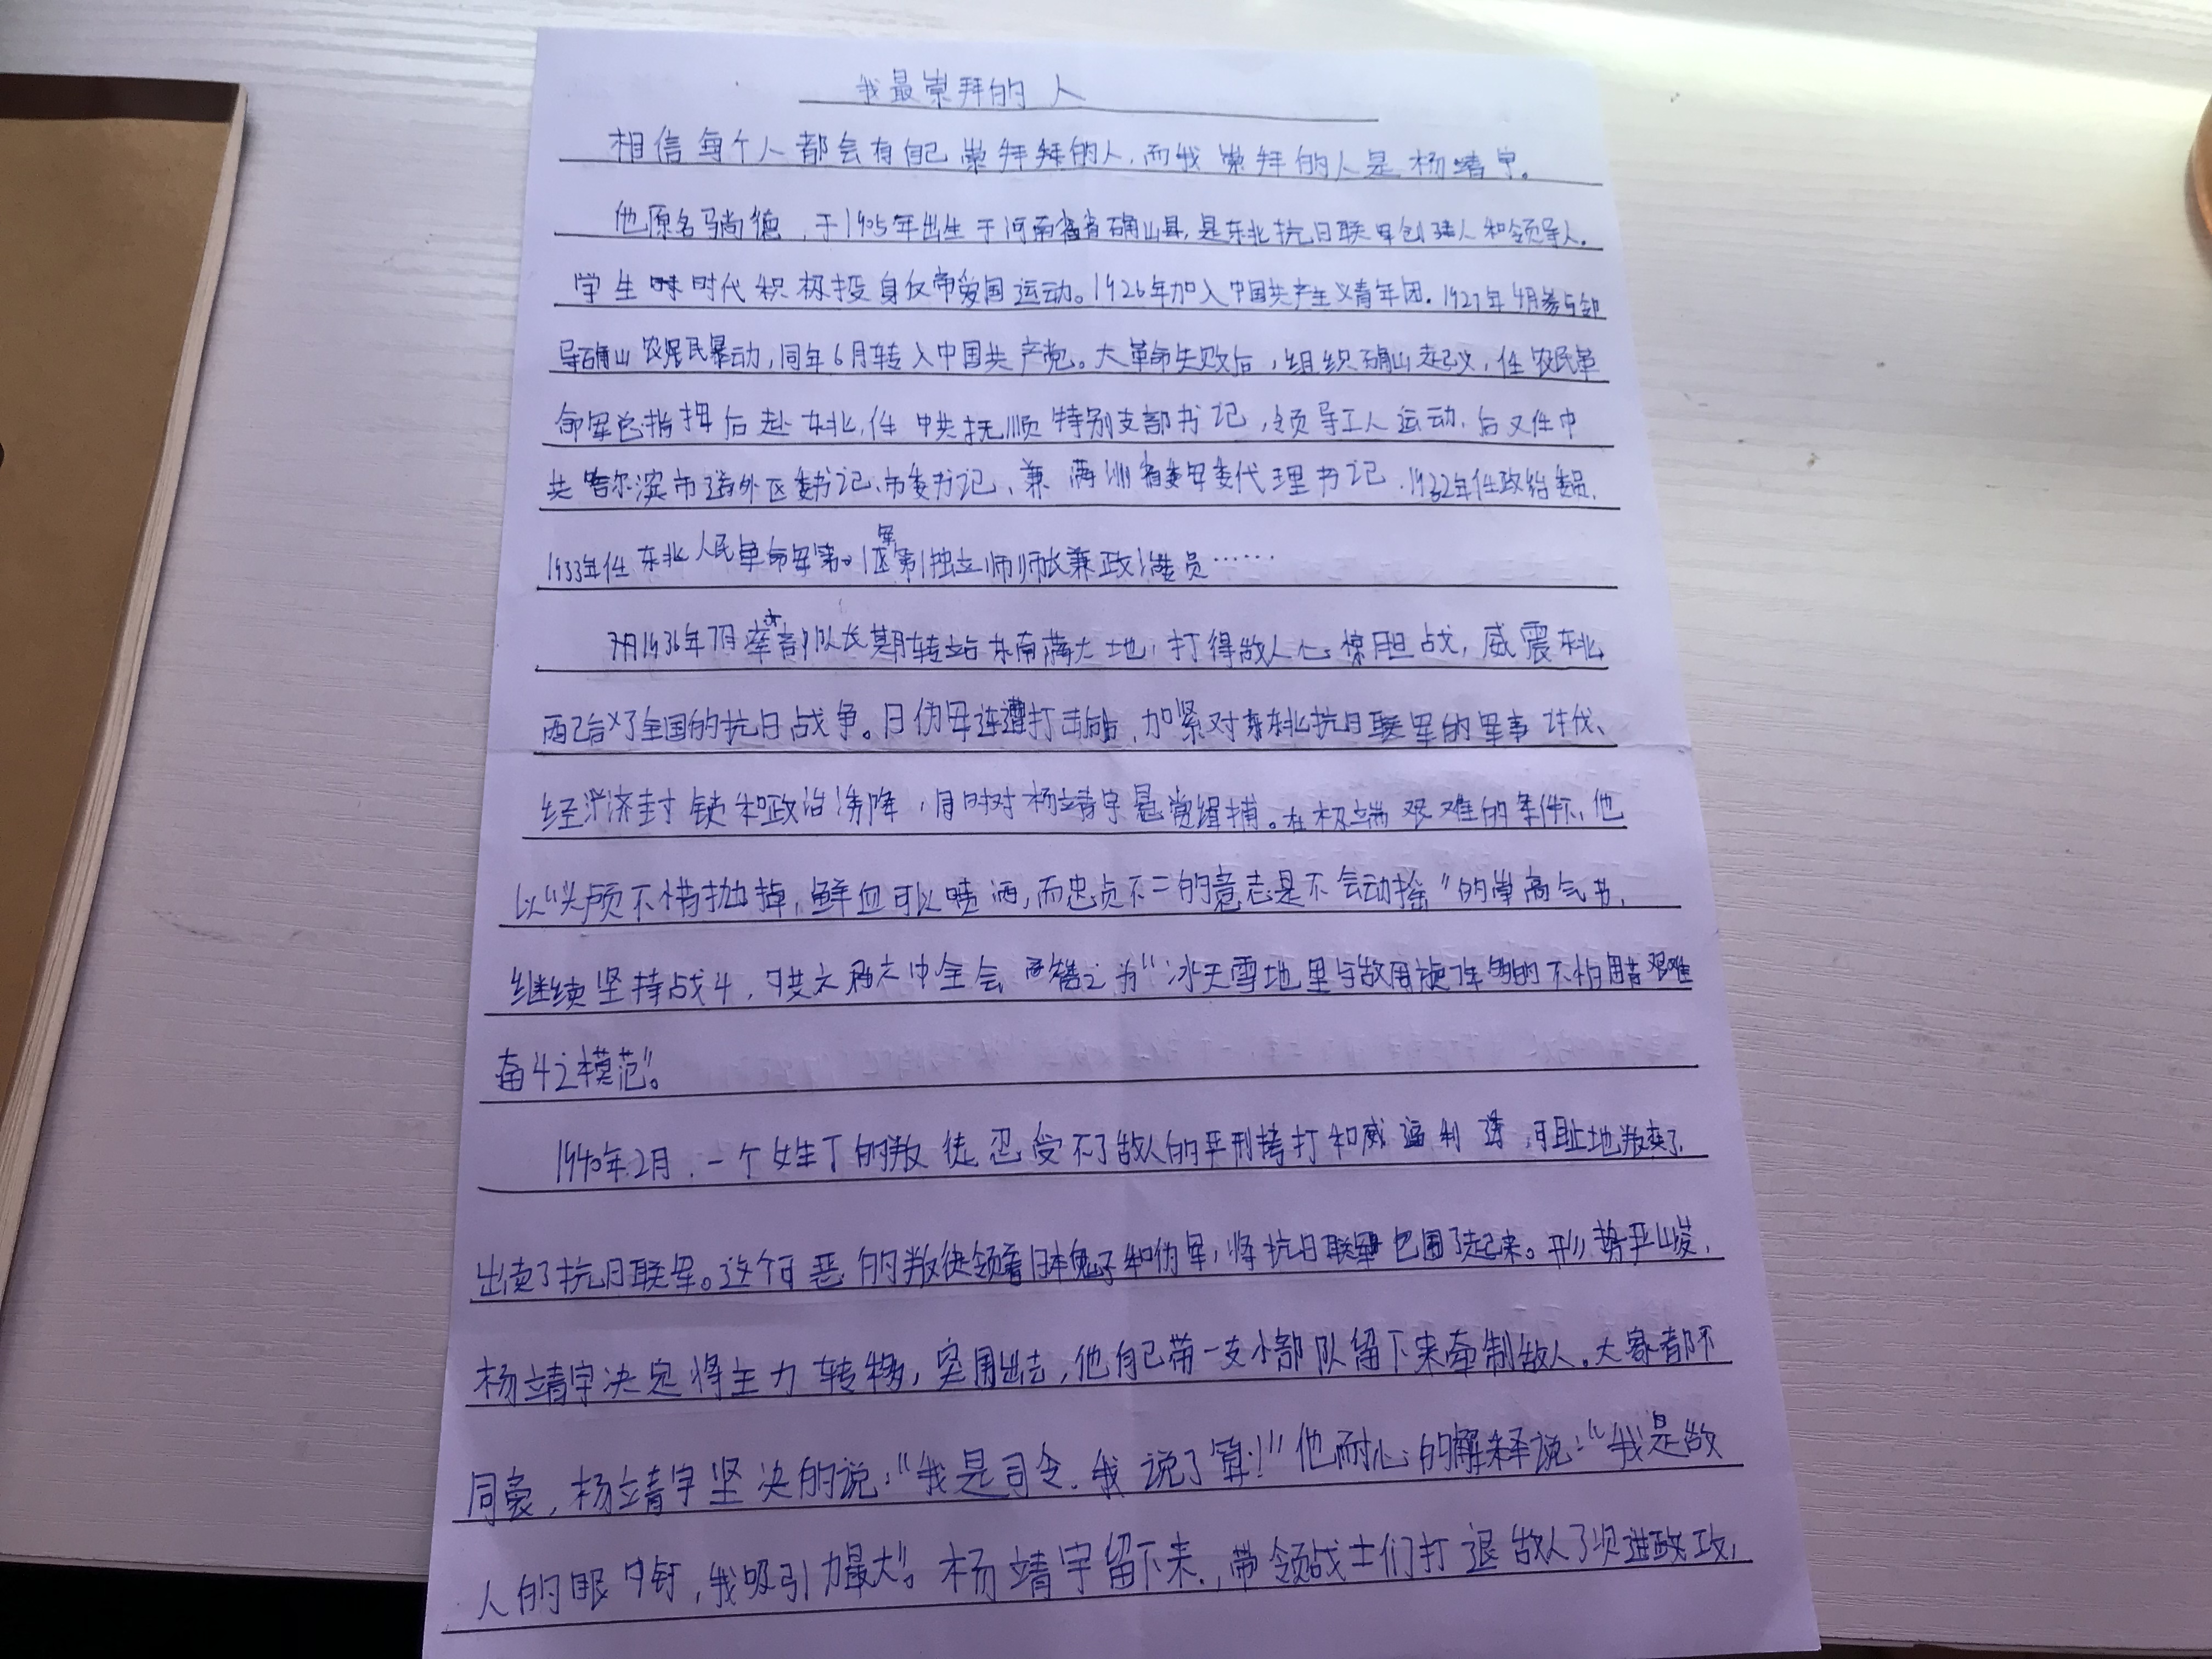 我最崇拜的人
相信每个人都会有自己崇拜的人,而我崇拜的人是杨靖宇。
他原名马尚德,于1905年出生于河南省确山县,是东北抗日联军创建人和领导人。
学生时代积极投身反帝爱国运动。1926年加入中国共产主义青年团.1927年4月参与领
导确山农民暴动,同年6月转入中国共产党。大革命失败后,组织确山起义,任农民革
命军总指挥后赴东北,任中共抚顺特别支部书记,领导工人运动.后又任中
共哈尔滨市道外区委书记、市委书记、兼满洲省委军委代理书记.1932年任政治委员.
1933年任东北人民革命军第1军第1独立师师长兼政治委员……
1936年 率部队长期转战东南满大地,打得敌人心惊胆战,威震东北
配合了全国的抗日战争。日伪军连遭打击后,加紧对东北抗日联军的军事讨伐、
经济封锁和政治诱降,同时对杨靖宇悬赏缉捕。在极端艰难的条件下,他
以“头颅不惜抛掉,鲜血可以喷洒,而忠贞不二的意志是不会动摇”的崇高气节,
继续坚持战斗, 六中全会 之为“冰天雪地里与敌周旋7年 的不怕困苦艰难
奋斗之模范”。
1940年2月.一个姓丁的叛徒忍受不了敌人的严刑拷打和威逼利诱,可耻地叛变了
出卖了抗日联军。这个可恶的叛徒领着日本鬼子和伪军,将抗日联军包围了起来。形势严峻,
杨靖宇决定将主力转移,突围出去,他自己带一支小部队留下来牵制敌人。大家都不
同意,杨靖宇坚决的说:“我是司令.我说了算!”他耐心的解释说:“我是敌
人的眼中钉,我吸引力最大”。杨靖宇留下来,带领战士们打退敌人 进攻,